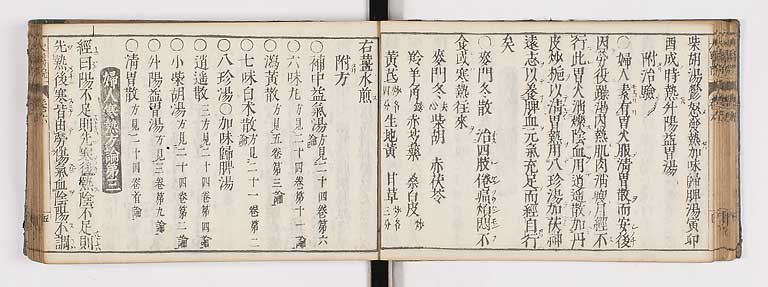 柴胡湯鬱怒發熱加味歸脾湯寅卯
酉戌時熱升陽益胃湯
附治驗
○婦人素有胃火服清胃散而安後
因勞役躁渴内熱肌肉消瘦月經不
行此胃火消爍陰血用逍遙散加丹
皮炒梔以清胃熱用八珍湯加茯神
遠志以養脾血元氣充足而經自行
矣
○麥門冬散 治四肢倦痛煩悶不
食或寒熱往來
麥門冬 心 柴胡 赤茯苓
羚羊角 赤芍藥 桑白皮 炒
黄芪 生地黄 甘草
右薑水煎
附方
○補中益氣湯 方見二十四卷第六論
○六味丸 方見二十四卷第十一論
○瀉黄散 方見五卷第三論
○七味白朮散 方見二十一卷第二論
○八珍湯○加味歸脾湯
○逍遙散 三方見二十四卷第四論
○小柴胡湯 方見二十四卷第二論
○升陽益胃湯 方見三卷第九論
○清胃散 方見二十四卷首論
婦人寒熱方論第三
經曰陽不足則先寒後熱陰不足則
先熱後寒皆由勞傷氣血陰陽不調